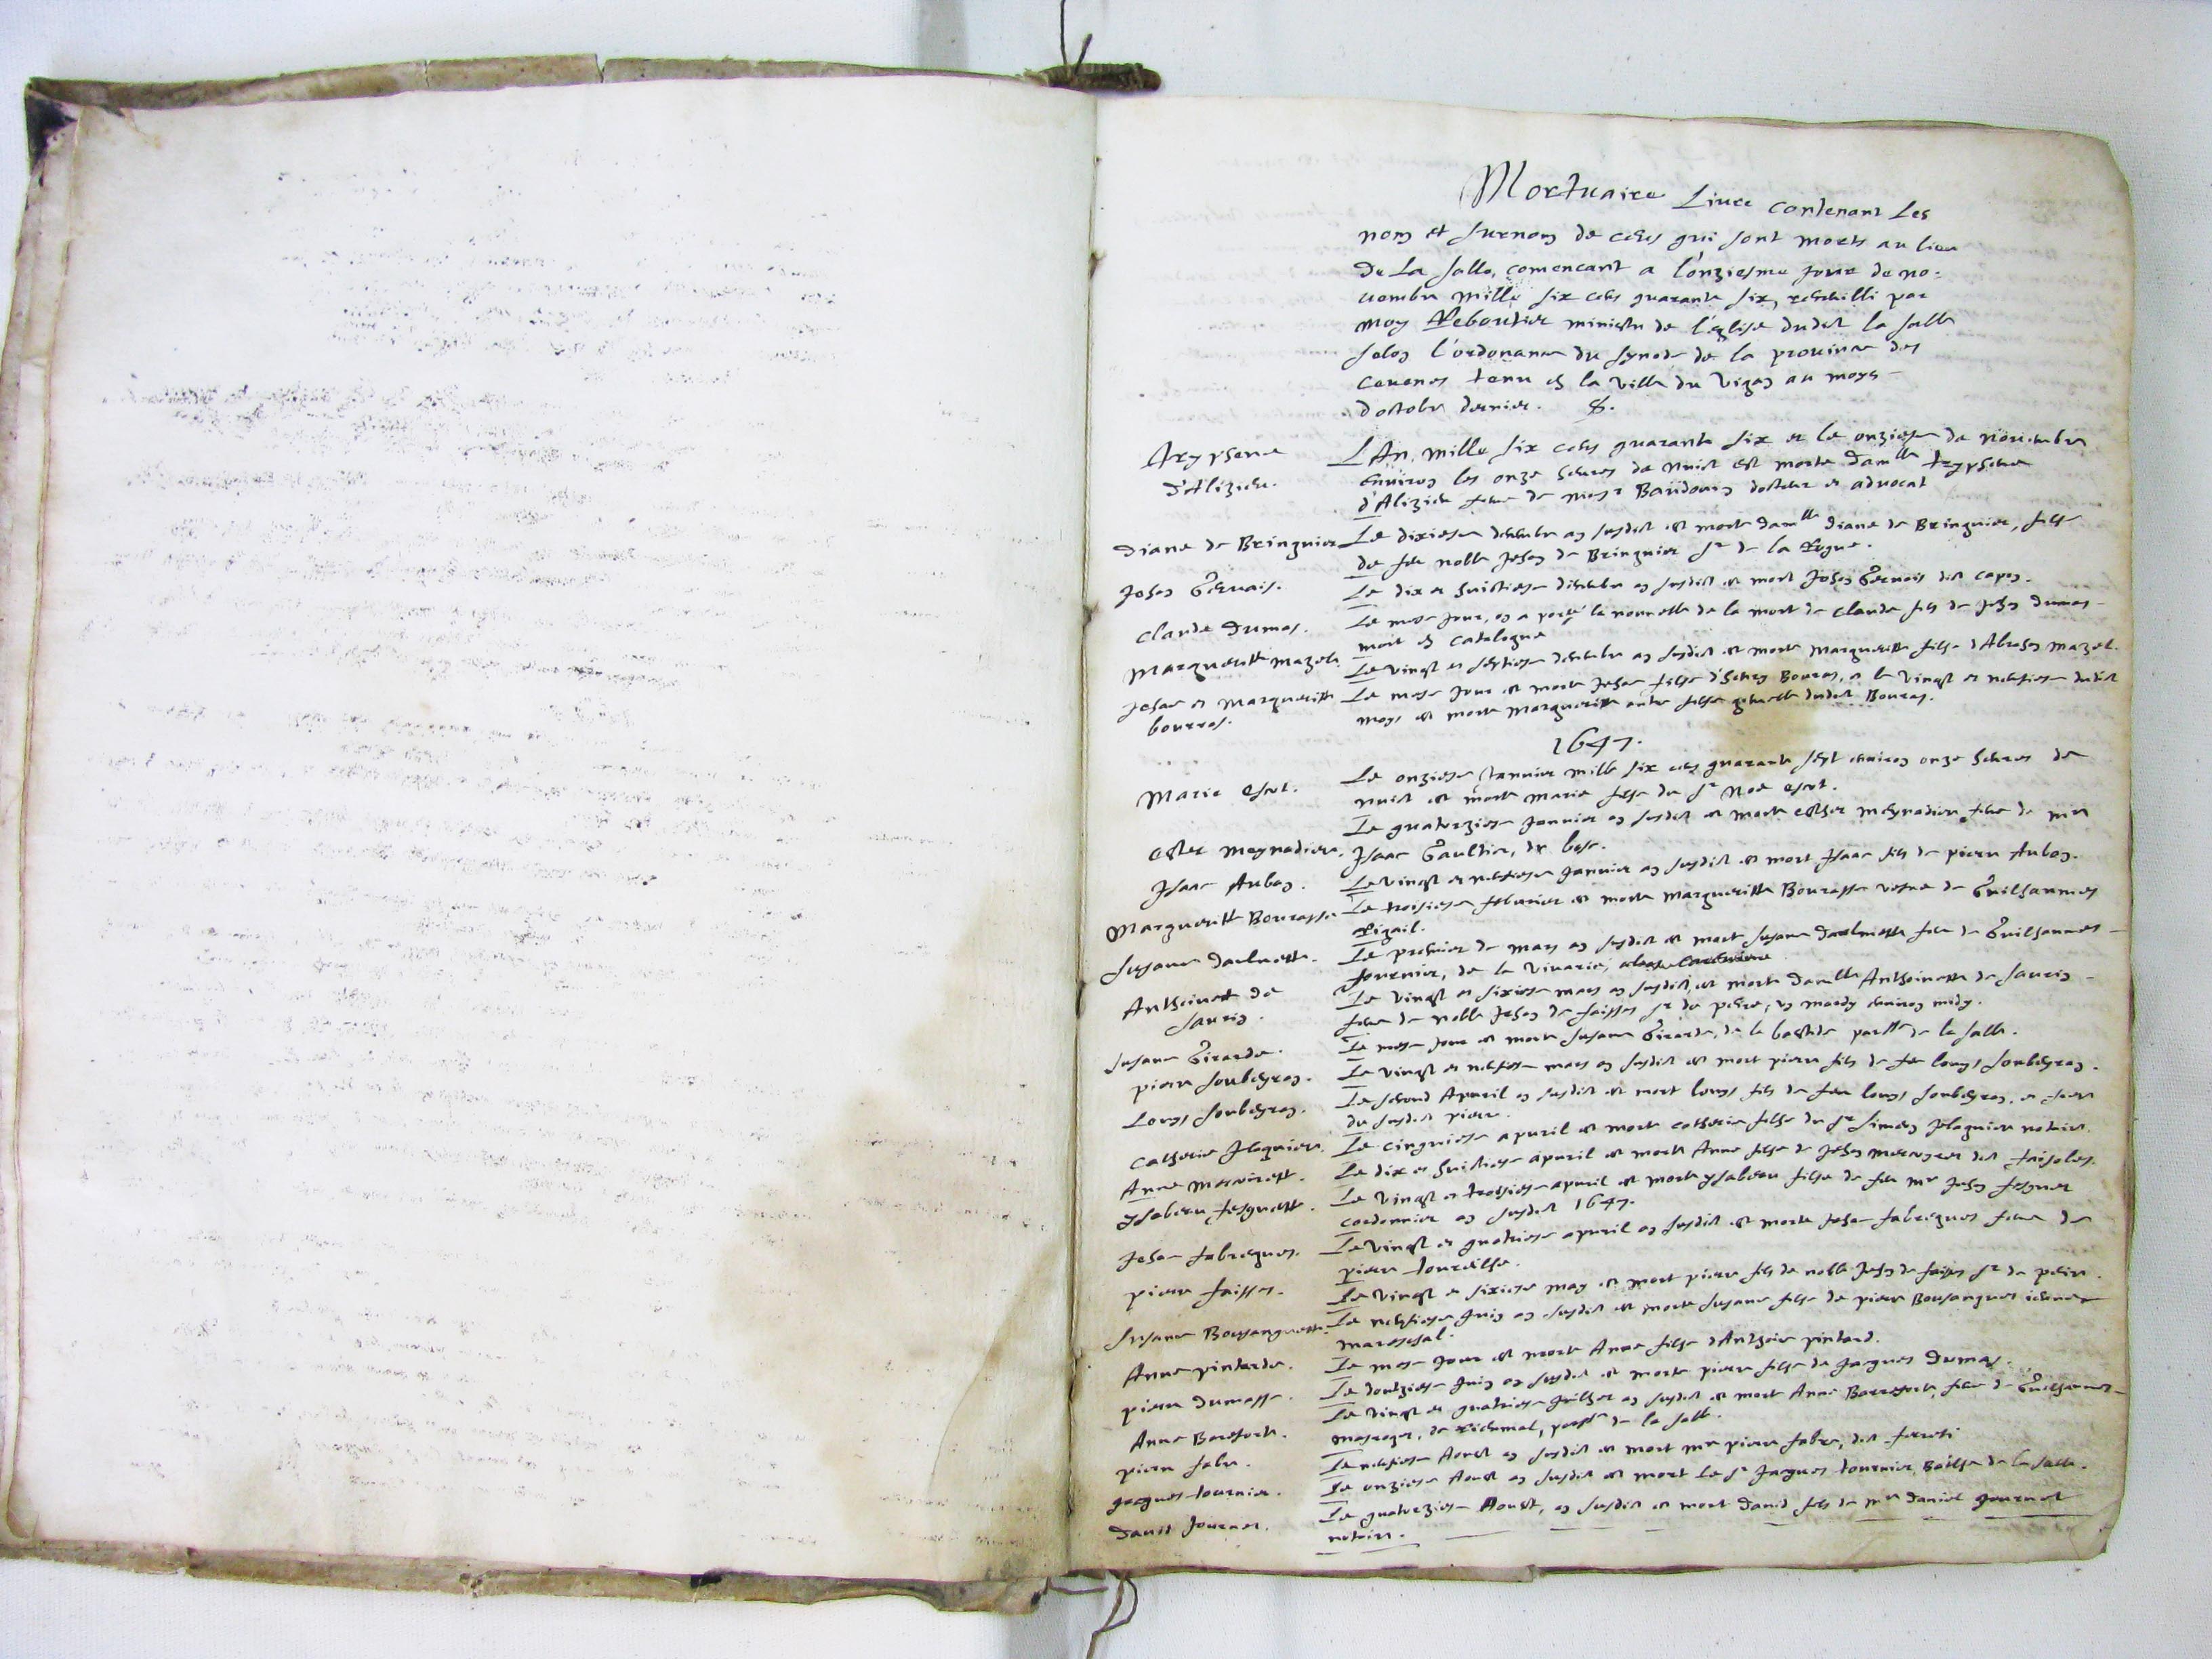 Mortuaire Livre contenant Les
nom et surnom de ceus qui sont morts au lieu
de La salle, comencant a l'onziesme jour de no-
vembre mille six cens quarante six, recueilli par
moy Reboutier ministre de l'église dudict la salle
selon l'ordonance du synode de la province des
cevenes tenu en la ville du vigan au moys
d'octobre dernier.
d'Alizieu.
L'An mille six cens quarante six et le onziesme de novembre
environ les onze heures de nuict est morte dam.lle
d'Alizieu feme de monsr Baudouin docteur et advocat
Diane de Bringuier
Le dixiesme decembre an susdict est morte dam.lle Diane de Bringuier, fille
de feu noble Jehan de Bringuier sr de la
Jehan Gervais.
Le dix et huictiesme decembre an susdict est mort Jehan Gervais dict capon.
Claude Dumas.
Le mesme jour, on a porté la nouvelle de la mort de Claude fils de Jehan Dumas
mort en catalogne
Margueritte Mazele.
Le vingt et septiesme decembre an susdict est morte Margueritte fille d'Abrahan Mazel.
Jehane et Margueritte
bourras.
Le mesme jour est morte Jehane fille Bouras, et le vingt et neufiesme dudict
moys est morte Margueritte autre fille gemelle dudict Bouras.
1647.
Marie Escot.
Le onziesme Janvier mille six cens quarante sept environ onze heures de
nuict est morte Marie fille du sr Noé Escot.
Ester Meynadiere.
Le quatorziesme Janvier an susdict est morte Esther Meynadiere feme de mre
Isaac Gaultier, de
Isaac Auban.
Le vingt et neufiesme Janvier an susdict est mort Isaac fils de pierre Auban.
Margueritte Bourasse
Le troisiesme febvrier est morte Margueritte Bourasse vefve de Guilhaumes
Rigail.
Susane
Le premier de mars an susdict est mort Susane feme de Guilhaumes
fournier, de la vivarié,
Anthoinette de
Saurin.
Le vingt et sixiesme mars an susdict est morte dam.lle Anthoinette de Saurin
feme de noble Jehan de faisses sr de, un mardy environ midy.
Susane Girarde.
Le mesme jour est morte Susane Girarde, de la bastide parsse de la salle.
pierre Soubeyran.
Le vingt et neufiesme mars an susdict est mort pierre fils de feu Louys Soubeyran.
Louys Soubeyran.
Le second Apvril an susdict est mort Louys fils de feu Louys Soubeyran, et frere
du susdict pierre.
Catherine
Le cinquiesme apvril est morte catherine fille du sr Simeon notaire.
Anne
Le dix et huictiesme apvril est morte Anne fille de Jehan dict
Ysabeau fesquette.
Le vingt et troisiesme apvril est morte ysabeau fille de feu mre Jehan fesquet
cordonnier an susdict 1647.
Jehane fabregues.
Le vingt et quatriesme apvril an susdict est morte Jehane fabregues feme de
pierre
pierre faisses.
Le vingt et sixiesme may est mort pierre fils de noble Jehan de faisses sr de
Susane Bousanquette.
Le neufiesme Juin an susdict est morte Susane fille de pierre Bousanquet
mareschal.
Anne pintarde.
Le mesme jour est morte Anne fille d'Anthoine pintard.
pierre Dumasse.
Le doutziesme Juin an susdict est morte pierre fille de Jacques Dumas.
Anne Barafort.
Le vingt et quatriesme Juillet an susdict est mort Anne Barafort, feme de Guilhaumes
de, parsse de la salle.
pierre fabre.
Le neufiesme Aoust an susdict est mort mre pierre fabre, dict
Jacques tournier.
Le onziesme Aoust an susdict est mort le sr Jacques tournier, Baille de la salle.
David Journet.
Le quatorziesme Aoust, an susdict est mort David fils de mre Daniel Journet
notaire.